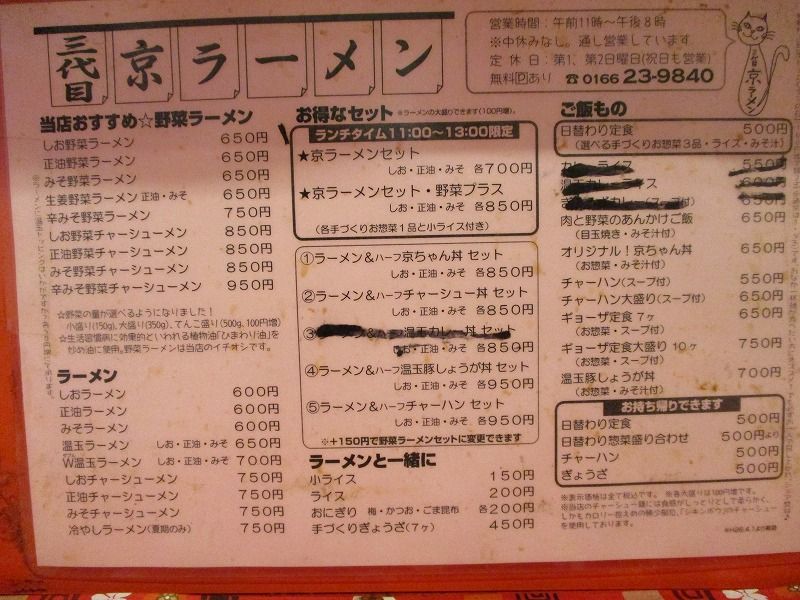 三代目 京ラーメン
営業時間：午前11時〜午後8時
※中休みなし。通し営業しています
定休日：第1、第2日曜日(祝日も営業)
無料Pあり ☎0166 23-9840
三代目京ラーメン
当店おすすめ☆野菜ラーメン
しお野菜ラーメン 650円
正油野菜ラーメン 650円
みそ野菜ラーメン 650円
生姜野菜ラーメン 正油・みそ 650円
辛みそ野菜ラーメン 750円
しお野菜チャーシューメン 850円
正油野菜チャーシューメン 850円
みそ野菜チャーシューメン 850円
辛みそ野菜チャーシューメン 950円
☆野菜の量が選べるようになりました！
小盛り(150g)、大盛り(350g)、てんこ盛り(500g、100円増)
☆生活習慣病に効果的といわれる植物油「ひまわり油」を
炒め油に使用。野菜ラーメンは当店のイチオシです。
ラーメン
しおラーメン 600円
正油ラーメン 600円
みそラーメン 600円
温玉ラーメン しお・正油・みそ 650円
W温玉ラーメン しお・正油・みそ 700円
しおチャーシューメン 750円
正油チャーシューメン 750円
みそチャーシューメン 750円
冷やしラーメン(夏期のみ) 750円
お得なセット ※ラーメンの大盛りできます(100円増)。
ランチタイム11:00〜13:00限定
★京ラーメンセット
しお・正油・みそ 各700円
★京ラーメンセット・野菜プラス
しお・正油・みそ 各850円
(各手づくりお惣菜1品と小ライス付き)
①ラーメン&ハーフ京ちゃん丼 セット
しお・正油・みそ 各850円
②ラーメン&ハーフチャーシュー丼 セット
しお・正油・みそ 各850円
③ラーメン&ハーフ温玉カレー丼 セット
しお・正油・みそ 各850円
④ラーメン&ハーフ温玉豚しょうが丼 セット
しお・正油・みそ 各950円
⑤ラーメン&ハーフチャーハン セット
しお・正油・みそ 各950円
※+150円で野菜ラーメンセットに変更できます
ラーメンと一緒に
小ライス 150円
ライス 200円
おにぎり 梅・かつお・ごま昆布 各200円
手づくりぎょうざ(7ヶ) 450円
ご飯もの
日替わり定食 500円
(選べる手づくりお惣菜3品・ライス・みそ汁)
カレーライス 550円
温玉カレーライス 600円
カレー(スープ付) 650円
肉と野菜のあんかけご飯 650円
(目玉焼き・みそ汁付)
オリジナル！京ちゃん丼 650円
(お惣菜・みそ汁付)
チャーハン(スープ付) 550円
チャーハン大盛り(スープ付) 650円
ギョーザ定食 7ヶ 650円
(お惣菜・スープ付)
ギョーザ定食大盛り 10ヶ 750円
(お惣菜・スープ付)
温玉豚しょうが丼 700円
(お惣菜・みそ汁付)
お持ち帰りできます
日替わり定食 500円
日替わり惣菜盛り合わせ 500円より
チャーハン 500円
ぎょうざ 500円
※表示価格は全て税込です。 ※各大盛りは100円増です。
※当店のチャーシュー麺には食感がしっとりとして柔らかく、
しかもカロリー控えめの稀少部位、「シキンボウ」のチャーシュー
を使用しております。